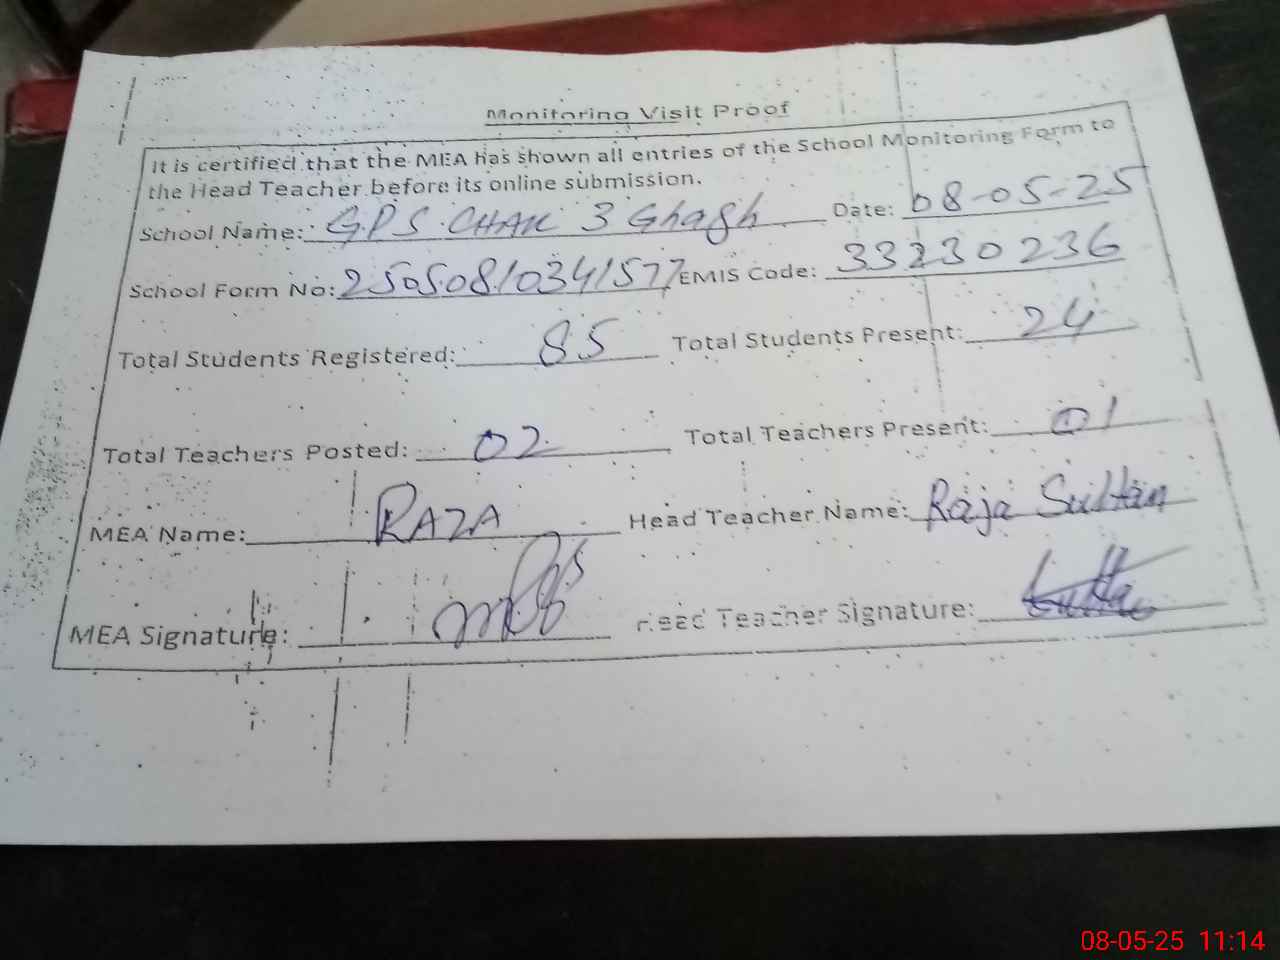 Monitoring Visit Proof
It is certified that the MEA has shown all entries of the School Monitoring Form to
the Head Teacher before its online submission.
School Name: G.P.S. CHAK 3 Ghagh Date: 08-05-25
School Form No: 25050810341577 EMIS Code: 33230236
Total Students Registered: 85 Total Students Present: 24
Total Teachers Posted: 02 Total Teachers Present: 01
MEA Name: RAZA Head Teacher Name: Raja Sultan
MEA Signature: Head Teacher Signature:
08-05-25 11:14